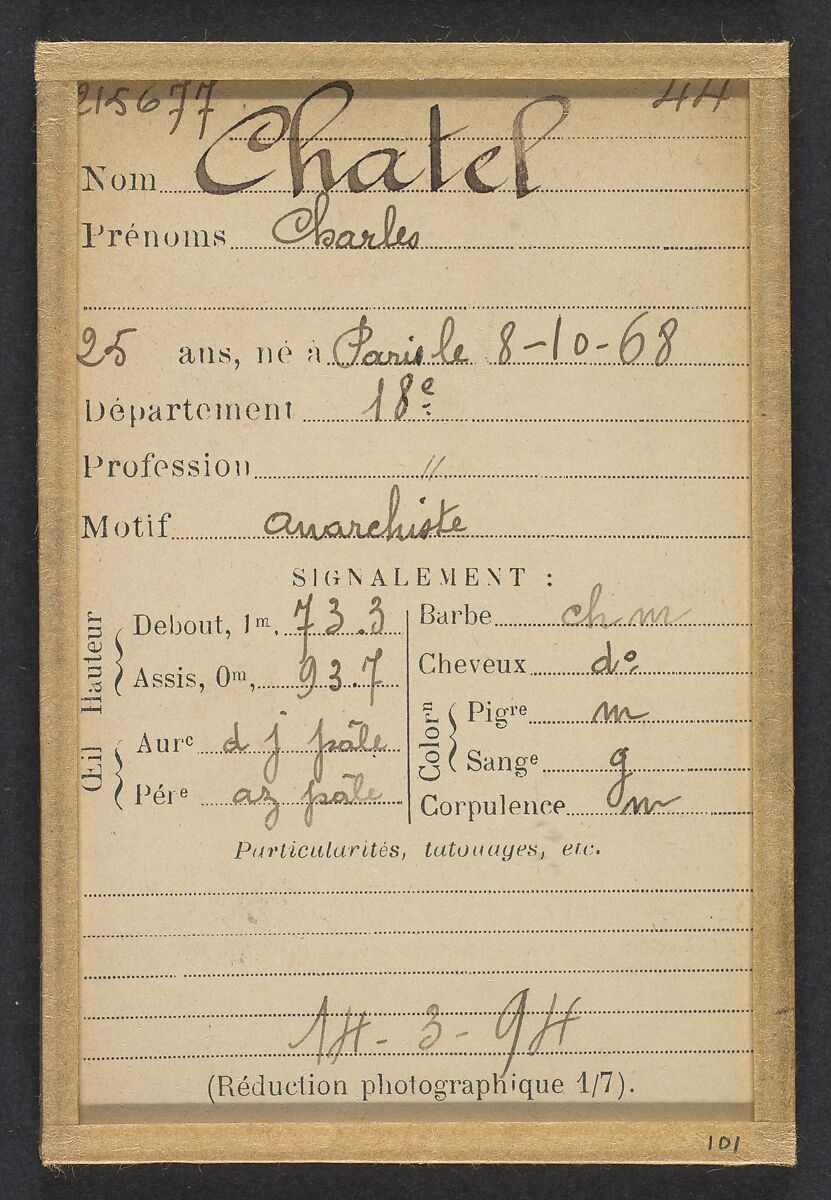 215677 44
Nom Chatel
Prénoms Charles
25 ans, né à Paris le 8-10-68
Département 18e
Profession "
Motif anarchiste
SIGNALEMENT :
Hauteur
Debout, 1m, 73.3
Assis, 0m, 93.7
Œil
Aure d j pâle
Pére az pâle
Barbe ch m
Cheveux do
Colorn
Pigre m
Sange g
Corpulence m
Particularités, tatouages, etc.
14-3-94
(Réduction photographique 1/7).
101